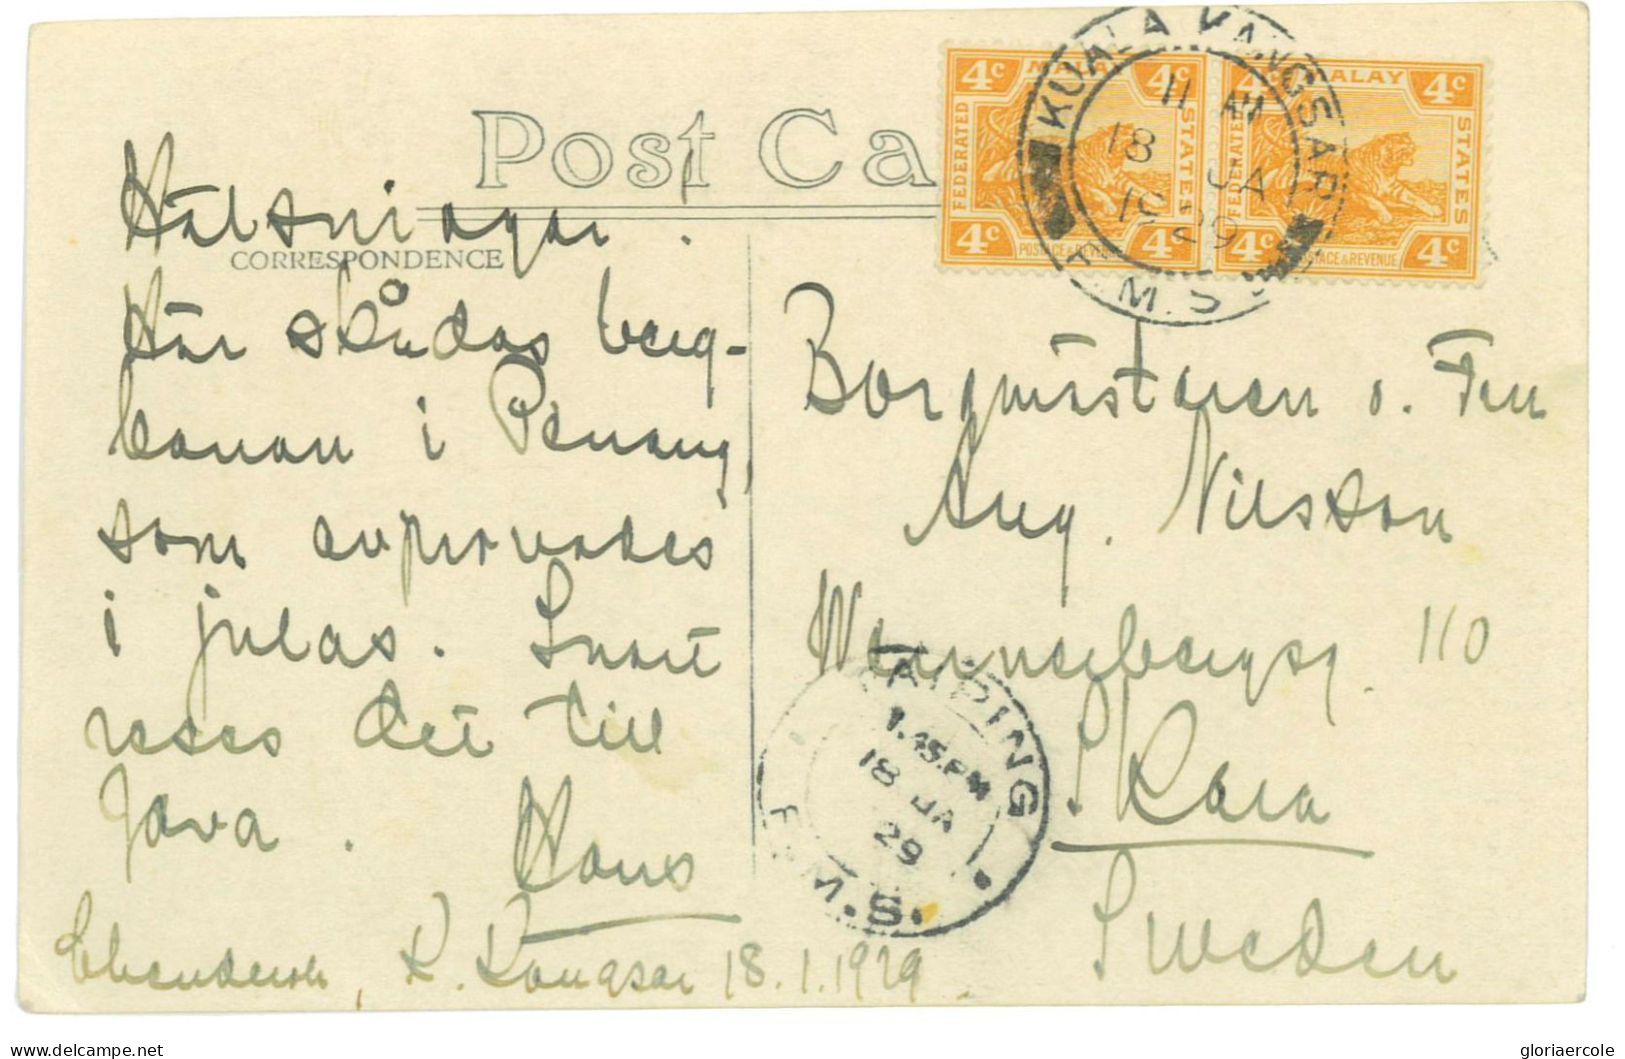 Post Ca
CORRESPONDENCE
Hälsningar!
Här skådas berg-
banan i Penang,
som avprovades
i julas. Snart
reses det till
Java.
Hans
K. Kangsar 18.1.1929.
4c MALAY 4c
FEDERATED
STATES
4c POSTAGE & REVENUE 4c
4c MALAY 4c
FEDERATED
STATES
4c POSTAGE & REVENUE 4c
KUALA KANGSAR
11 AM
18 JA
1929
F.M.S.
Borgmästaren o. Fru
Aug. Nilsson
Wennerbergsg. 110
Skara
Sweden
TAIPING
1.45.PM
18 JA
29
F.M.S.
delcampe.net
gloriaercole